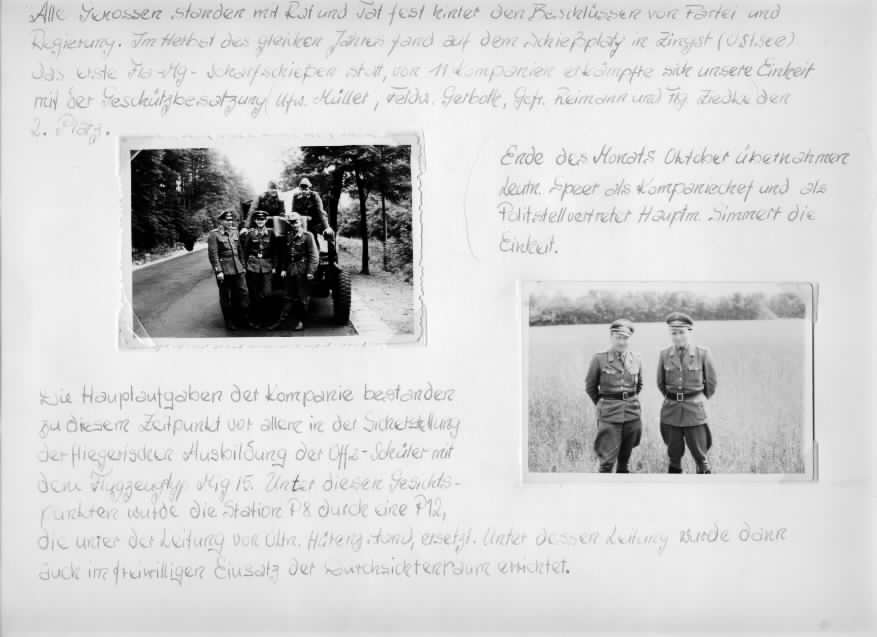 Alle Genossen standen mit Rat und Tat fest hinter den Beschlüssen von Partei und
Regierung. Im Herbst des gleichen Jahres fand auf dem Schießplatz in Zingst (Ostsee)
das erste Fla-Mg-Scharfschießen statt, von 11 Kompanien erkämpfte sich unsere Einheit
mit der Geschützbesatzung Ufw. Müller, Feldw. Gerboth, Gefr. Reimann und Flg. Ziedka den
2. Platz.
Ende des Monats Oktober übernahmen
Leutn. Speer als Kompaniechef und als
Politstellvertreter Hauptm. Simmert die
Einheit.
Die Hauptaufgaben der Kompanie bestanden
zu diesem Zeitpunkt vor allem in der Sicherstellung
der fliegerischen Ausbildung der Offz.-Schüler mit
dem Flugzeugtyp Mig 15. Unter diesen Gesichts-
punkten wurde die Station P8 durch eine P12,
die unter der Leitung von Ultn. stand, ersetzt. Unter dessen Leitung wurde dann
auch im freiwilligen Einsatz der errichtet.